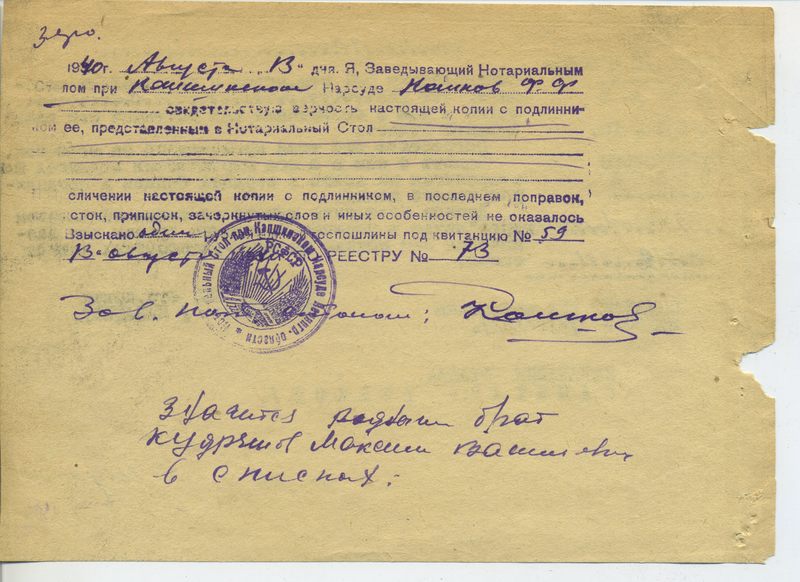 1940г. Августа „13" дня. Я, Заведывающий Нотариальным
Столом при Кашкинском Нарсуде Кошков Ф Ф
свидетельствую верность настоящей копии с подлинни-
ком ее, представленным в Нотариальный Стол
сличении настоящей копии с подлинником, в последнем поправок,
сток, приписок, зачеркнутых слов и иных особенностей не оказалось
Взыскано один руб госпошлины под квитанцию № 59
13 августа РЕЕСТРУ № 73
РСФСР
Зав. Нот. столом:
Значится родным брат
Кудряшов Максим Васильевич
в списках.